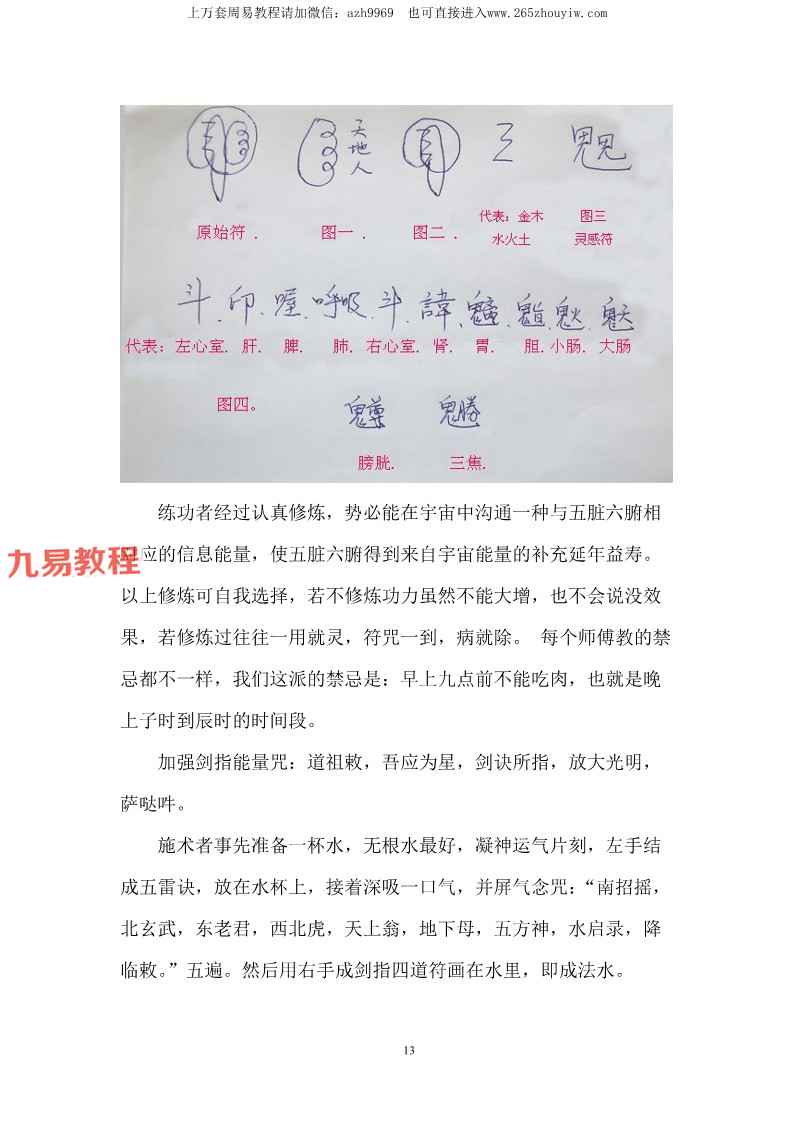 上万套周易教程请加微信：azh9969 也可直接进入www.265zhouyiw.com
天地人
三
原始符 .
图一 .
图二 .
代表：金木
水火土
图三
灵感符
斗. 卬. 喔. 呼吸. 斗. 諱.
代表：左心室. 肝. 脾. 肺. 右心室. 肾. 胃. 胆. 小肠. 大肠
图四。
膀胱.
三焦.
练功者经过认真修炼，势必能在宇宙中沟通一种与五脏六腑相
应的信息能量，使五脏六腑得到来自宇宙能量的补充延年益寿。
九易教程
以上修炼可自我选择，若不修炼功力虽然不能大增，也不会说没效
果，若修炼过往往一用就灵，符咒一到，病就除。 每个师傅教的禁
忌都不一样，我们这派的禁忌是：早上九点前不能吃肉，也就是晚
上子时到辰时的时间段。
加强剑指能量咒：道祖敕，吾应为星，剑诀所指，放大光明，
萨哒吽。
施术者事先准备一杯水，无根水最好，凝神运气片刻，左手结
成五雷诀，放在水杯上，接着深吸一口气，并屏气念咒：“南招摇，
北玄武，东老君，西北虎，天上翁，地下母，五方神，水启录，降
临敕。”五遍。然后用右手成剑指四道符画在水里，即成法水。
13